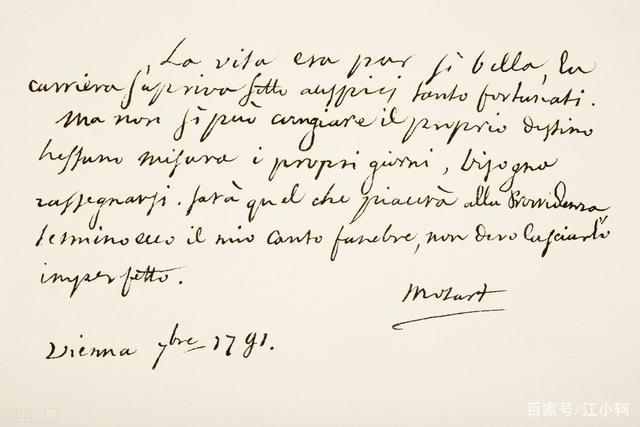 La vita era pur sì bella, la
carriera s'apriva sotto auspicj tanto fortunati.
Ma non si può cangiare il proprio destino
nessuno misura i propri giorni, bisogna
rassegnarsi. sarà quel che piacerà alla Providenza
termino ecco il mio canto funebre, non devo lasciarlo
imperfetto.
Mozart
Vienna 7bre 1791.
图虫创意
百家号/江小轲